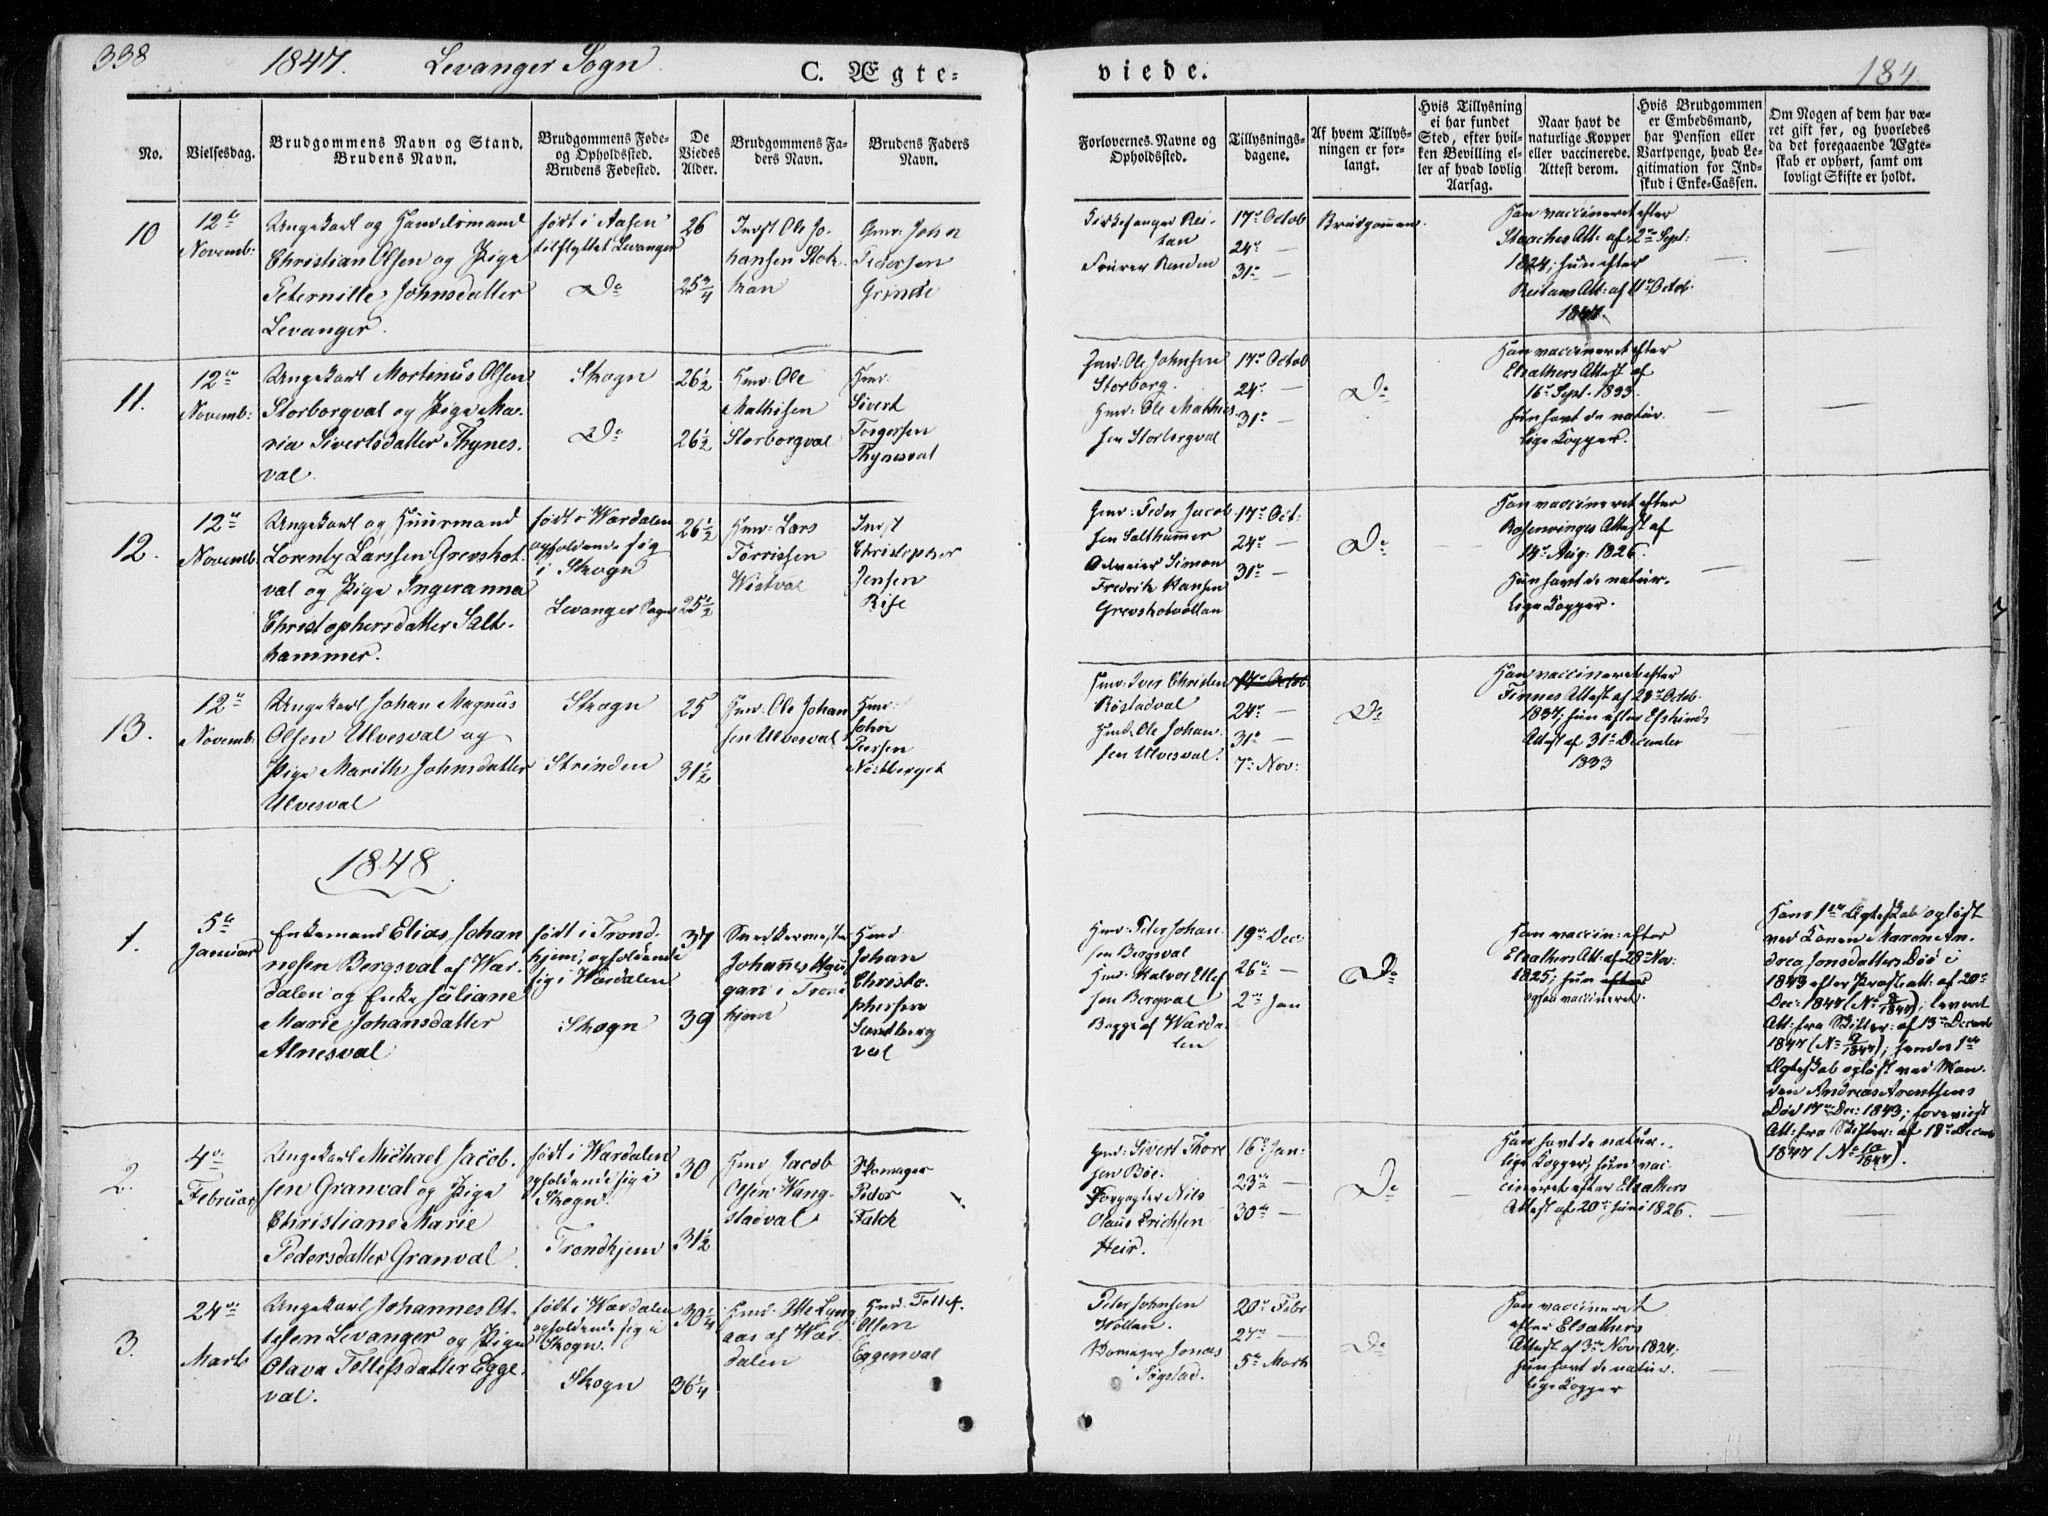 338
1847. Levanger Sogn.
C. Ægte=
viede.
184
No.
Vielsesdag.
Brudgommens Navn og Stand.
Brudens Navn.
Brudgommens Føde-
og Opholdssted.
Brudens Fødested.
De
Viedes
Alder.
Brudgommens Fa-
ders Navn.
Brudens Faders
Navn.
Forlovernes Navne og
Opholdssted.
Tillysnings-
dagene.
Af hvem Tillys-
ningen er for-
langt.
Hvis Tillysning
ei har fundet
Sted, efter hvil-
ken Bevilling el-
ler af hvad lovlig
Aarsag.
Naar havt de
naturlige Kopper
eller vaccinerede.
Attest derom.
Hvis Brudgommen
er Embedsmand,
har Pension eller
Vartpenge, hvad Le-
gitimation for Ind-
skud i Enke-Cassen.
Om Nogen af dem har væ-
ret gift før, og hvorledes
da det foregaaende Ægte-
skab er ophørt, samt om
lovligt Skifte er holdt.
10
12te
Novemb:
Ungekarl og Handelsmand
Christian Olsen og Pige
Peternille Johnsdatter
Levanger.
født i Aasen
tilflyttet Levanger
Do
26
25 3/4
Indst Ole Jo-
hansen Stok-
kan
Gmd: John
Pedersen
Grinde
Kirkesanger Rei-
tan
Fourer Renden
17de Octob
24de —
31te —
Brudgommen.
Han vaccineret efter
Staaches Att: af 2den Sept:
1824; hun efter
Reitans Att: af 11te Octob:
1847.
11.
12te
Novemb:
Ungekarl Mortinus Olsen
Storborgval og Pige Ma-
ria Sivertsdatter Thynes-
val.
Skogn
Do
26 1/2
26 1/2
Hmd: Ole
Mathisen
Storborgval
Hmd:
Sivert
Torgersen
Thynesval
Gmd: Ole Johnsen
Storborg.
Hmd: Ole Mathis-
sen Storborgval
17de Octob
24de —
31te —
Do
Han vaccineret efter
Elsathers Attest af
16de Sept. 1833.
Hun havt de natur-
lige Kopper.
12.
12te
Novemb:
Ungekarl og Huusmand
Lorentz Larssen Grevskot-
val og Pige Ingeranna
Christophersdatter Salt-
hammer.
født i Wærdalen
opholdende sig
i Skogn
Levanger Sogn
26 1/2
25 1/2
Hmd: Lars
Tørrissen
Wistval
Indst
Christopher
Jensen
Rise
Hmd: Peder Jacob
sen Salthammer
Simon
Fredrik Hansen
Grevskotvollan
17de Oct:
24de —
31te —
Do
Han vaccineret efter
Rosenvinges Attest af
14de Aug: 1826.
Hun havt de natur-
lige Kopper.
13.
12te
Novemb:
Ungekarl Johan Magnus
Olsen Ulvesval og
Pige Marith Johnsdatter
Ulvesval
Skogn
Strinden
25
31 1/2
Hmd: Ole Johan
sen Ulvesval
Hmd:
John
Persen
Nøstberget
Hmd: Iver Christen
Røstadval
Hmd: Ole Johan-
sen Ulvesval.
17de Octob:
24de —
31te —
7de Nov:
Do
Han vaccineret efter
Finnes Attest af 28de Octob:
1837; hun efter Eskinds
Attest af 31te December
1833
1848
1.
5te
Januar
Enkemand Elias Johan
nesen Bergsval af Vær-
dalen og Enke Juliane
Marie Johansdatter
Alnesval
født i Trond-
hjem, opholdende
sig i Værdalen
Skogn
37
39
Snedkermester
Johannes
i Trond-
hjem
Hmd
Johan
Christo-
phersen
Sundberg
val
Hmd: Peter Johan-
sen Bergsval
Hmd: Halvor Ellef
sen Bergval
Begge af Værda-
len
19de Dec:
26de —
2den Jan
Do
Han vaccin: efter
Elsathers Att: af 28de Nov:
1825; hun efter
ogsaa vaccineret.
Hans 1ste Ægteskab opløst
ved Konen Maren An-
drea Jonsdatters Død i
1843 efter Præsteatt: af 20de
Dec: 1847 (No 8/1847); leveret
Att: fra Skifter: af 13de Decemb
1847 (No 9/1847); hendes 1ste
Ægteskab opløst ved Man-
den Andreas Arentsens
Død 17de Dec: 1843; foreviist
Att: fra Skifter: af 18de Decemb
1847 (No 10/1847).
2.
4de
Februar
Ungekarl Michael Jacob-
sen Granval og Pige
Christiane Marie
Pedersdatter Granval
født i Wærdalen
opholdende sig i
Skogn.
Trondhjem
30
31 1/2
Hmd Jacob
Olsen Wang-
stadval
Skomager
Peder
Falck
Gmd: Sivert Thore
sen Bøe.
Forpagter Nils
Olaus Erichsen
Heir.
16de Jan:
23de —
30te —
Do
Han havt de natur-
lige Kopper, hun vac-
cineret efter Elsathers
Attest af 20de Juni 1826.
3.
24de
Marts
Ungekarl Johannes Ot-
tesen Levanger og Pige
Olava Tollefsdatter Egge-
val.
født i Wærdalen
opholdende sig i
Skogn.
Skogn
30 1/4
36 1/4
Hmd: Otte Lyng
aas af Vær-
dalen
Hmd: Tollef
Olsen
Eggenval
Peter Johnsen
Wollan.
Skomager Jonas
Søgstad.
20de Febr
27de —
5te Marts
Do
Han vaccineret
efter Elsathers
Attest af 3die Nov: 1824;
hun havt de natur-
lige Kopper